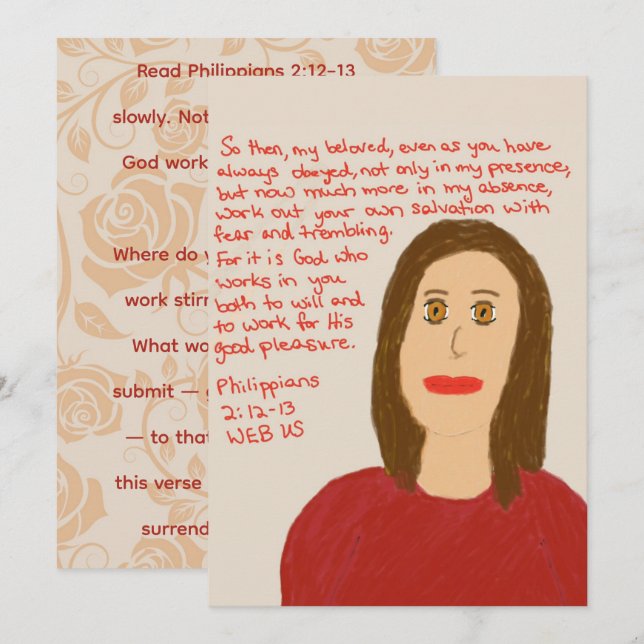 Read Philippians 2:12–13
slowly. Not
God work
Where do y
work stirr
What wo
submit — g
— to that
this verse
surrend
So then, my beloved, even as you have
always obeyed, not only in my presence,
but now much more in my absence,
work out your own salvation with
fear and trembling.
For it is God who
works in you
both to will and
to work for His
good pleasure.
Philippians
2:12-13
WEB US